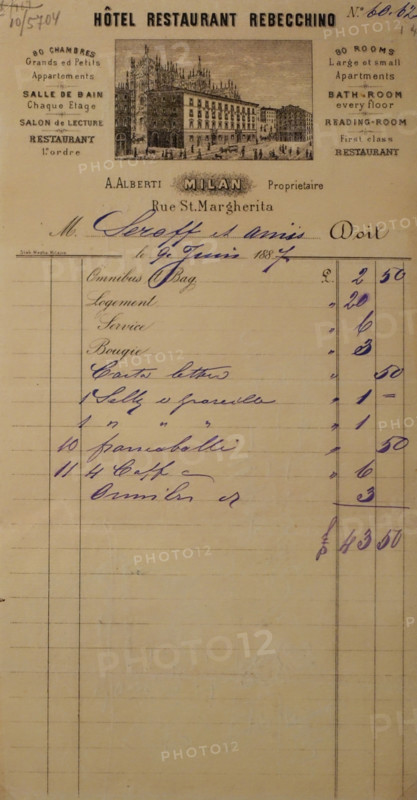 10/5704
HÔTEL RESTAURANT REBECCHINO
N.º 60.62
90 CHAMBRES
Grands ed Petits
Appartements
SALLE DE BAIN
Chaque Etage
SALON DE LECTURE
RESTAURANT
1.er ordre
90 ROOMS
Large et small
Apartments
BATH-ROOM
every floor
READING-ROOM
First class
RESTAURANT
A. ALBERTI MILAN Propriétaire
Rue St. Margherita
M. Seroff et amis Doit
le 9 Juin 1887
Omnibus 1 Bag. £. 2 50
Logement " 20
Service " 6
Bougie " 3
Carta " 50
1 " 1 =
1 " " " " 1
10 francobolli " 50
11 4 Caff " 6
Omnibus 3
43 50
PHOTO12